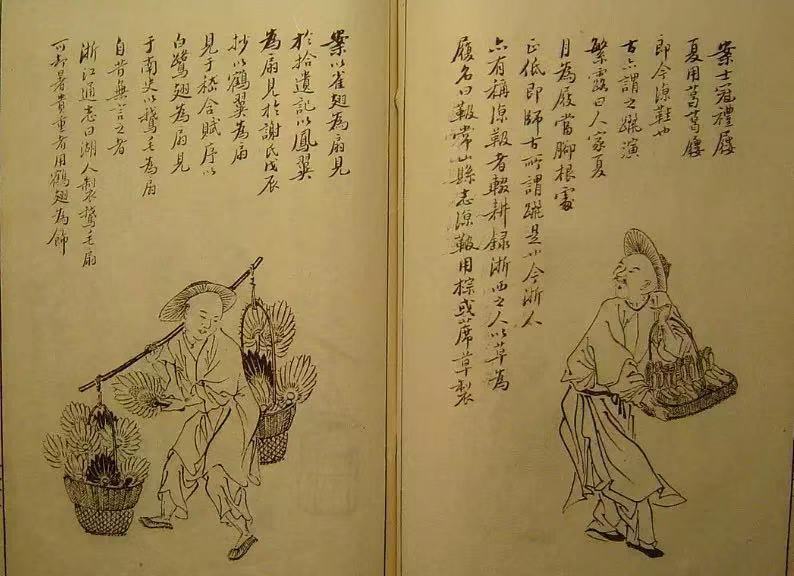 案士冠禮屨
夏用葛葛屨
即今涼鞋也
古亦謂之躧演
繁露曰人家夏
月為屐當腳根處
正低即師古所謂躧是也今浙人
亦有稱涼靸者輟耕錄浙西之人以草為
履名曰靸常山縣志涼靸用棕或蓆草製
案以雀翅為扇見
於拾遺記以鳳翼
為扇見於謝氏戊辰
抄以鶴翼為扇
見于嵇含賦序以
白鷺翅為扇見
于南史以鵞毛為扇
自昔無言之者
浙江通志曰湖人製鵞毛扇
可却暑貴重者用鶴翅為飾